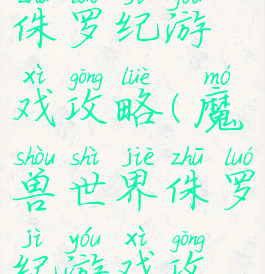 侏罗纪游
xì gōng lüè mó
戏攻略(魔
shòu shì jiè zhū luó
兽世界侏罗
jì yóu xì gōng
纪游戏攻